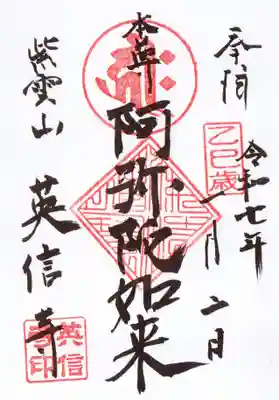 奉拝
乙巳歳
令和七年
一月二日
本尊
阿弥陀如来
紫雲山
英信寺
英信寺印